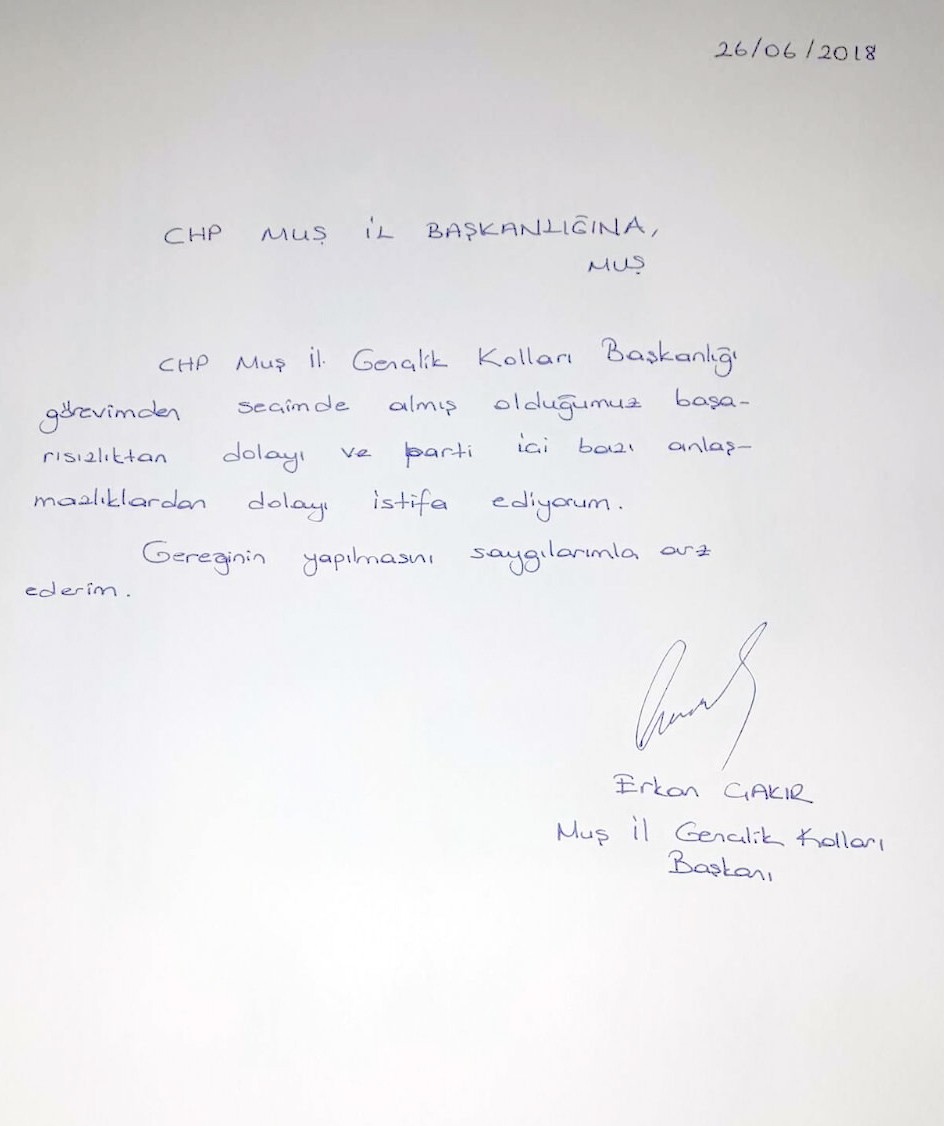 26/06/2018
CHP MUŞ İL BAŞKANLIĞINA,
MUŞ
CHP Muş İl Gençlik Kolları Başkanlığı
görevimden seçimde almış olduğumuz başa-
rısızlıktan dolayı ve parti içi bazı anlaş-
mazlıklardan dolayı istifa ediyorum.
Gereğinin yapılmasını saygılarımla arz
ederim.
Erkan ÇAKIR
Muş İl Gençlik Kolları
Başkanı